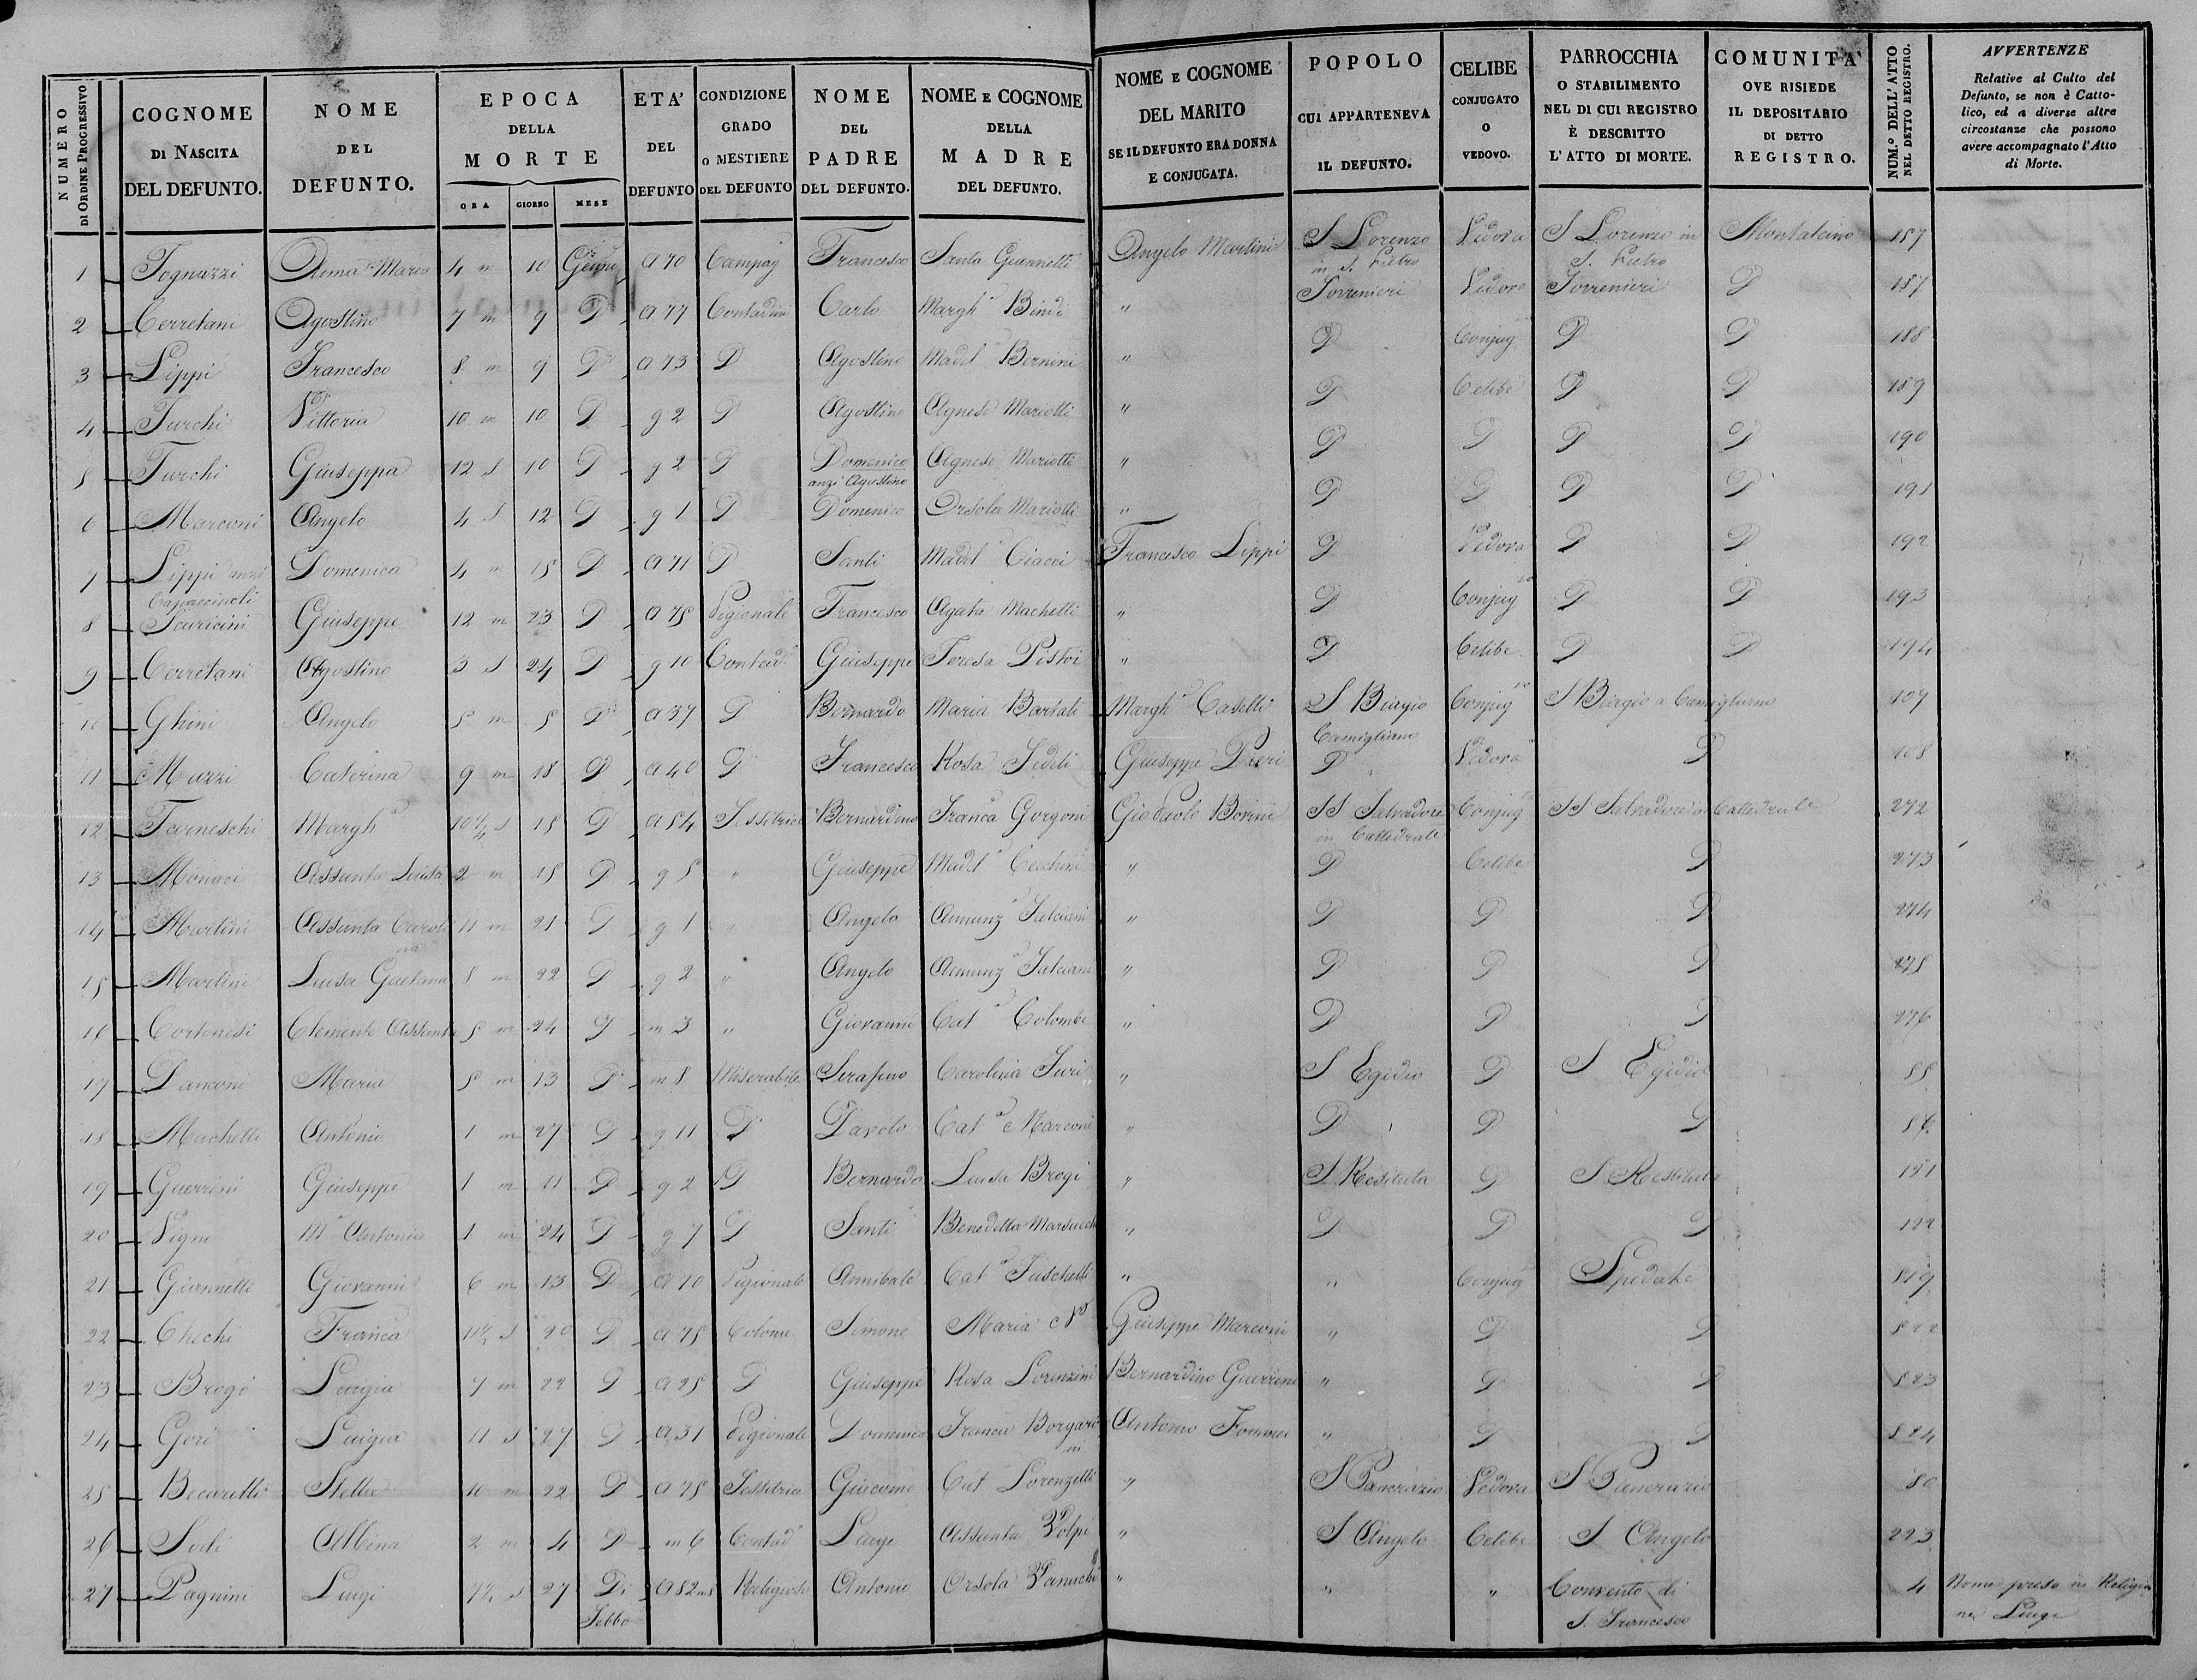 NUMERO DI ORDINE PROGRESSIVO
COGNOME DI NASCITA DEL DEFUNTO.
NOME DEL DEFUNTO.
EPOCA DELLA MORTE
ORA GIORNO MESE
ETA' DEL DEFUNTO
CONDIZIONE GRADO O MESTIERE DEL DEFUNTO
NOME DEL PADRE DEL DEFUNTO.
NOME E COGNOME DELLA MADRE DEL DEFUNTO.
NOME E COGNOME DEL MARITO SE IL DEFUNTO ERA DONNA E CONJUGATA.
POPOLO CUI APPARTENEVA IL DEFUNTO.
CELIBE CONJUGATO O VEDOVO.
PARROCCHIA O STABILIMENTO NEL DI CUI REGISTRO È DESCRITTO L'ATTO DI MORTE.
COMUNITA' OVE RISIEDE IL DEPOSITARIO DI DETTO REGISTRO.
NUM.º DELL'ATTO NEL DETTO REGISTRO.
AVVERTENZE
Relative al Culto del Defunto, se non è Cattolico, ed a diverse altre circostanze che possono avere accompagnato l'Atto di Morte.
1 Tognazzi Maria 4 m 10 Genno a 70 Campag Francesco Santa Giannetti Angelo Martini S Lorenzo in S. Pietro Vedova S Lorenzo in S. Pietro Montalcino 157
2 Cerretani Agostino 7 m 9 D a 77 Contadin Carlo Margh Bindi " Torrenieri Vedovo Torrenieri D 187
3 Lippi Francesco 8 m 9 D a 73 D Agostino Madd Bernini " D Conjug D D 188
4 Turchi Vittoria 10 m 10 D g 2 D Agostino Agnese Mariotti " D Celibe D D 189
5 Turchi Giuseppa 12 s 10 D g 2 D Domenico anzi Agostino Agnese Mariotti " D D D D 190
6 Marconi Angelo 4 s 12 D g 1 D Domenico Orsola Mariotti " D D D D 191
7 Lippi anzi Capaccioli Domenica 4 m 15 D a 71 D Santi Madd Ciacci Francesco Lippi D Vedova D D 192
8 Scaricini Giuseppe 12 m 23 D a 75 Pigionale Francesco Agata Machetti " D Conjug D D 193
9 Cerretani Agostino 3 s 24 D g 10 Contad Giuseppe Teresa Pistoi " D Celibe D D 194
10 Ghini Angelo 5 m 5 D a 37 D Bernardo Maria Bartali Margh Caselli S Biagio Camigliano Conjug S Biagio a Camigliano 107
11 Muzzi Caterina 9 m 18 D a 40 D Francesco Rosa Fedeli Giuseppe Pieri D Vedova D 108
12 Farneschi Margh 10 1/4 s 15 D a 54 Tessitrice Bernardino Franca Gorgoni Gio Paolo Borini SS Salvadore in Cattedrale Conjug SS Salvadore in Cattedrale 272
13 Monaci Assunta Luisa 2 m 15 D g 5 " Giuseppe Madd Cecchini " D Celibe D 273
14 Martini Assunta Carolina 11 m 21 D g 1 " Angelo Annunz Salciani " D D D 274
15 Martini Luisa Gaetana 8 m 22 D g 2 " Angelo Annunz Salciani " D D D 275
16 Cortonesi Clemente Assunta 5 m 24 D m 3 " Giovanni Cat Colombi " D D D 276
17 Lanconi Maria 5 m 13 D m 8 Miserabile Serafino Carolina " S Egidio D S Egidio 55
18 Machetti Antonio 1 m 27 D g 11 D Paolo Cat Marconi " D D D 56
19 Guerrini Giuseppe 1 m 11 D g 2 D Bernardo Luisa Brogi " S Restituta D S Restituta 121
20 Vigni Ma Antonia 1 m 24 D g 7 D Santi Benedetta Marsucchi " D D D 122
21 Giannelli Giovanni 6 m 13 D a 70 Pigionale Annibale Cat " " Conjug Spedale 819
22 Chechi Franca s 20 D a 75 Colona Simone Maria N Giuseppe Marconi " D D 822
23 Brogi Luigia 7 m 22 D a 25 D Giuseppe Rosa Lorenzini Bernardino Guerrini " D D 823
24 Gori Luigia 11 s 27 D a 31 Pigionale Domenico Franca Borgarini Antonio Tommei " D D 824
25 Becarelli Stella 11 m 22 D a 75 Tessitrice Giacomo Cat Lorenzetti " S Pancrazio Vedova S Pancrazio 80
26 Sodi Albina 2 m 4 D m 6 Contad Luigi Assunta Volpi " S Angelo Celibe S Angelo 223
27 Pagnini Luigi 7 1/2 s 27 Di a 82 Religioso Antonio Orsola Vanuchi " " " Convento di S. Francesco 4 Nome preso in Religione Luigi
Febbo